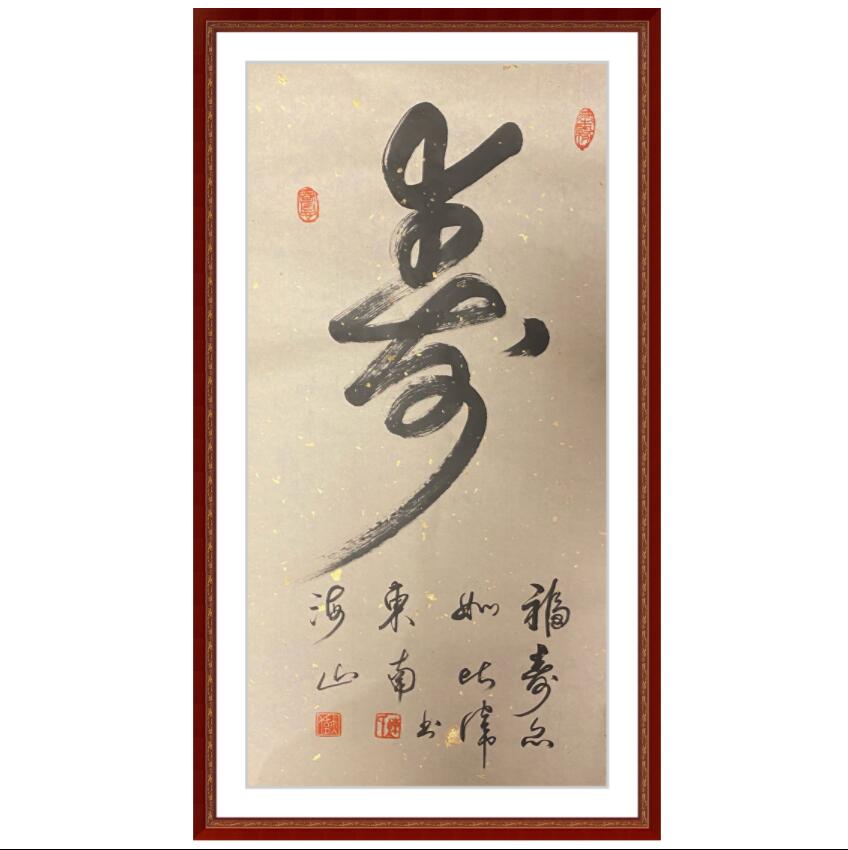 壽
福如東海
壽比南山
书